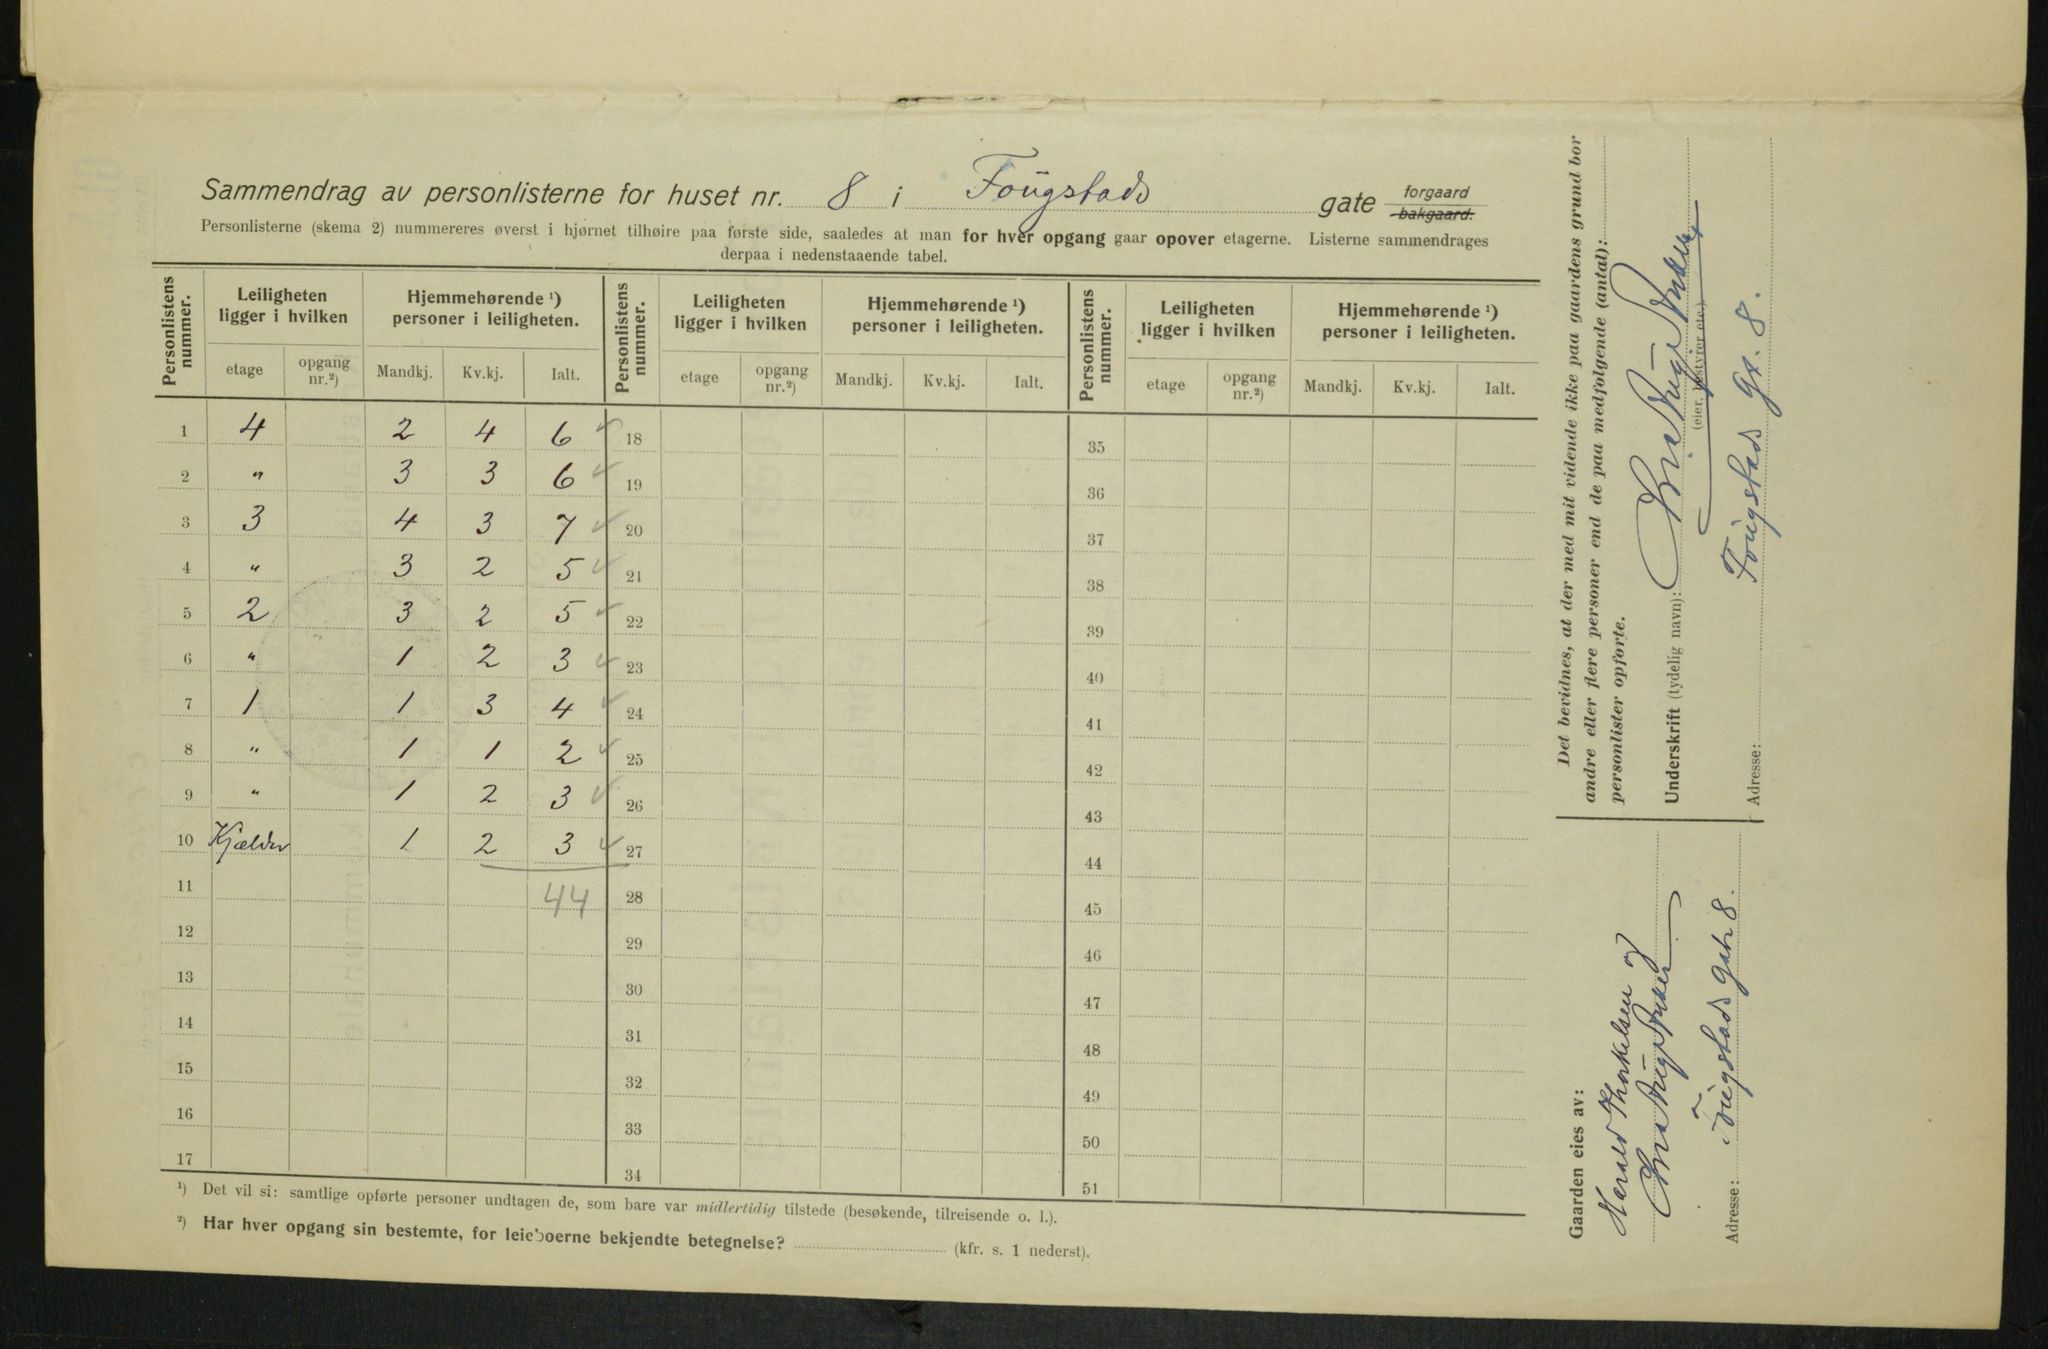 Sammendrag av personlisterne for huset nr. 8 i Fougstads gate forgaard bakgaard.
Personlisterne (skema 2) nummereres øverst i hjørnet tilhøire paa første side, saaledes at man for hver opgang gaar opover etagerne. Listerne sammendrages
derpaa i nedenstaaende tabel.
Personlistens nummer. Leiligheten ligger i hvilken Hjemmehørende ¹) personer i leiligheten. Personlistens nummer. Leiligheten ligger i hvilken Hjemmehørende ¹) personer i leiligheten. Personlistens nummer. Leiligheten ligger i hvilken Hjemmehørende ¹) personer i leiligheten.
etage opgang nr.²) Mandkj. Kv.kj. Ialt. etage opgang nr.²) Mandkj. Kv.kj. Ialt. etage opgang nr.²) Mandkj. Kv.kj. Ialt.
1 4 2 4 6 ✓ 18 35
2 " 3 3 6 ✓ 19 36
3 3 4 3 7 ✓ 20 37
4 " 3 2 5 ✓ 21 38
5 2 3 2 5 ✓ 22 39
6 " 1 2 3 ✓ 23 40
7 1 1 3 4 ✓ 24 41
8 " 1 1 2 ✓ 25 42
9 " 1 2 3 ✓ 26 43
10 Kjælder 1 2 3 ✓ 27 44
11 44 28 45
12 29 46
13 30 47
14 31 48
15 32 49
16 33 50
17 34 51
¹) Det vil si: samtlige opførte personer undtagen de, som bare var midlertidig tilstede (besøkende, tilreisende o. l.).
²) Har hver opgang sin bestemte, for leieboerne bekjendte betegnelse? (kfr. s. 1 nederst).
Det bevidnes, at der med mit vidende ikke paa gaardens grund bor
andre eller flere personer end de paa medfølgende (antal):
personlister opførte.
Underskrift (tydelig navn):
(eier, bestyrer etc.)
Adresse: Fougstads gt. 8.
Gaarden eies av:
Harald Thorkelsen og
Adresse: Fougstads gate 8.